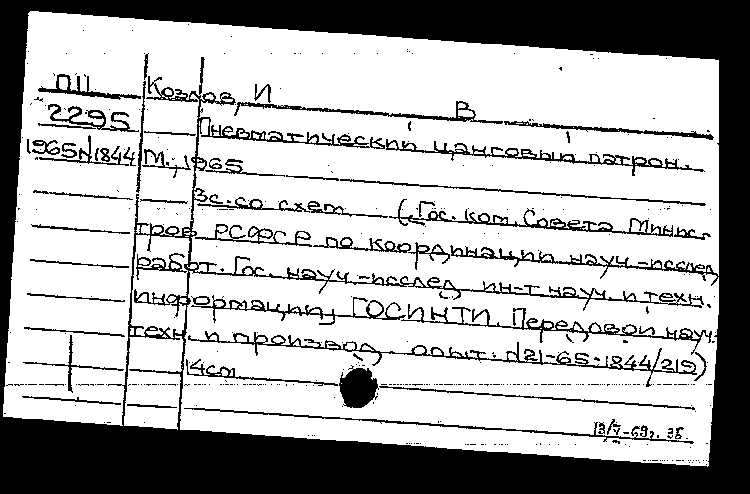 П11 Козлов, И В
2295 Пневматический цанговый патрон.
1965№1844 М., 1965
3с. со схем (Гос. ком. Совета Минис-
тров РСФСР по координации науч.-исслед.
работ. Гос. науч.-исслед. ин-т науч. и техн.
информации, ГОСИНТИ. Передовой науч.-
техн. и производ. опыт. №21-65-1844/219)
14см